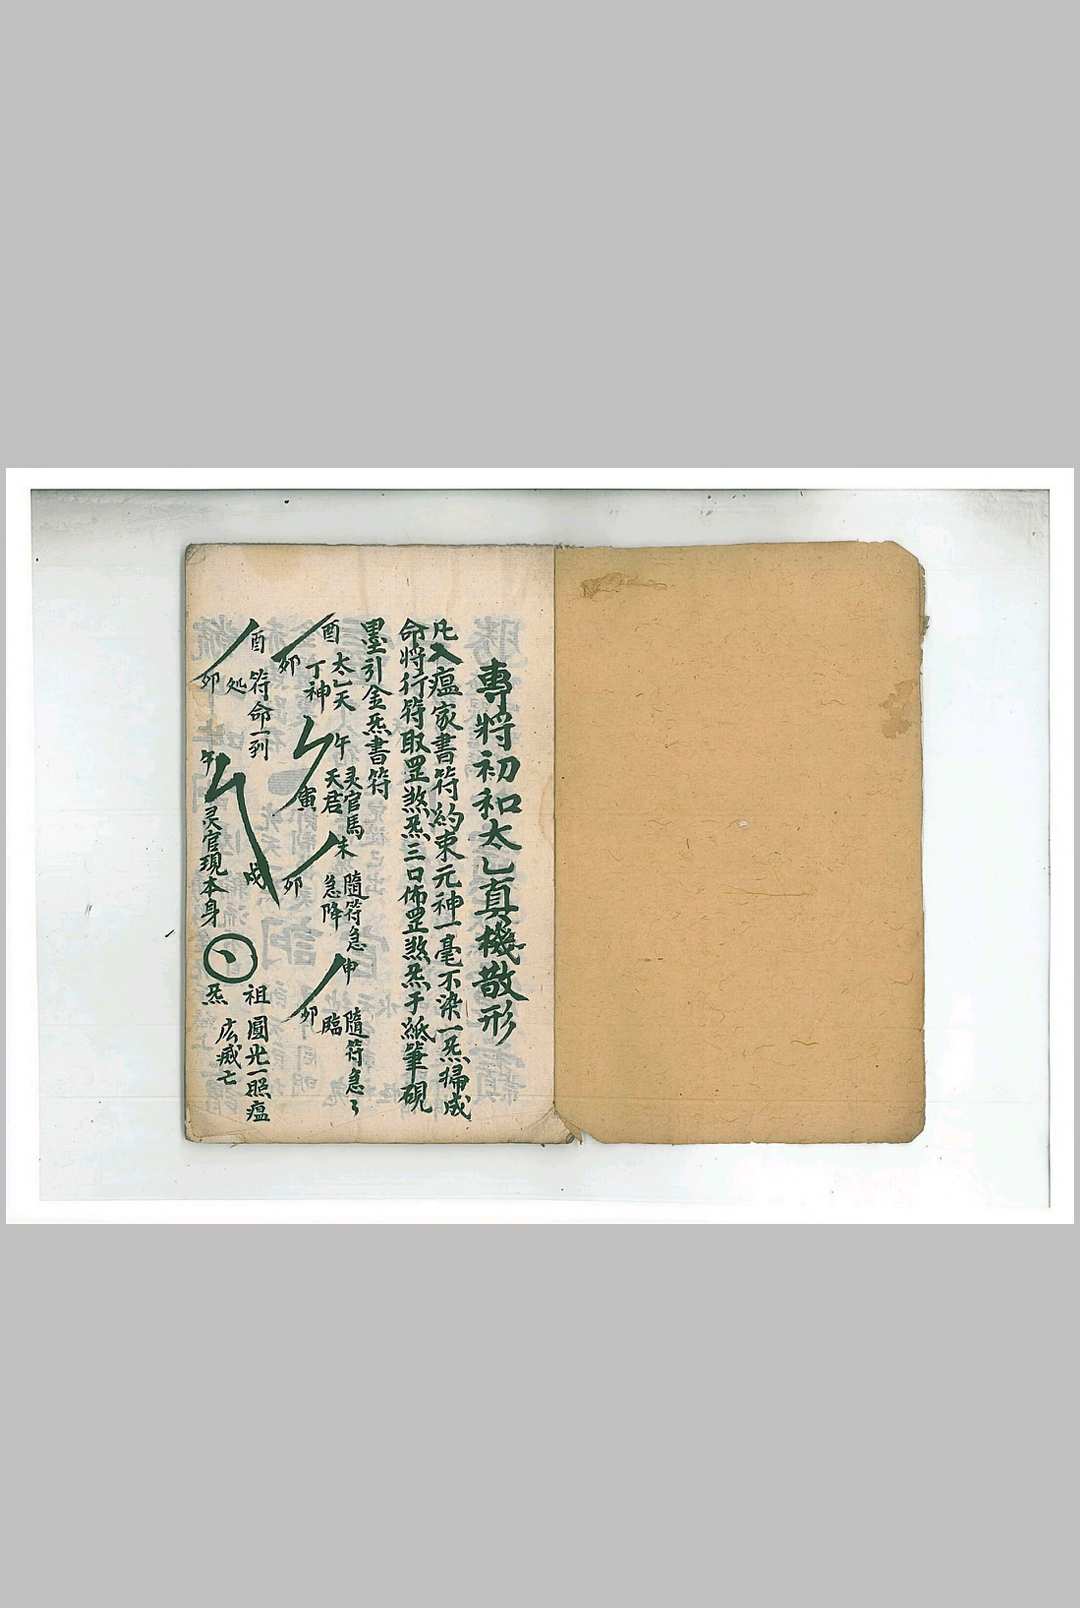 專將初和太乙真機散形
凡入瘟家書符約束元神一毫不染一炁掃成
命將行符取罡煞炁三口佈罡煞炁于紙筆硯
墨引金炁書符
酉
卯
太乙天
丁神
午
寅
灵官馬
天君
未
卯
隨符急
急降
申
卯
隨符急々
臨
酉
卯
符命一到
処
午
戌
灵官現本身
祖
炁
圓光一照瘟
広威亡